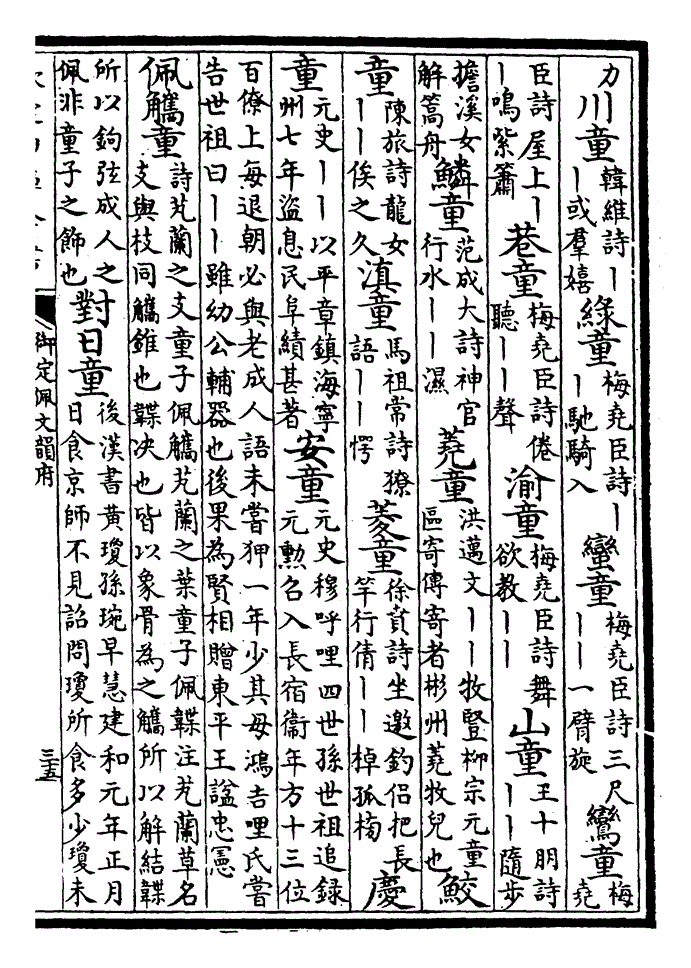 力川童韓維詩丨丨或羣嬉緑童梅堯臣詩丨丨馳騎入蠻童梅堯臣詩三尺丨丨一臂旋鸞童梅堯
臣詩屋上丨丨鳴紫簫巷童梅堯臣詩倦聽丨丨聲渝童梅堯臣詩舞欲教丨丨山童王十朋詩丨丨隨步
擔溪女解蒿舟鱗童范成大詩神官行水丨丨濕蕘童洪邁文丨丨牧豎柳宗元童區寄傳寄者彬州蕘牧兒也鮫
童陳旅詩龍女丨丨俟之久滇童馬祖常詩獠語丨丨愕菱童徐賁詩坐邀釣侣把長竿行倩丨丨棹孤楠慶
童元史丨丨以平章鎮海寧州七年盜息民阜績甚著安童元史穆呼哩四世孫世祖追録元勲召入長宿衞年方十三位
百僚上每退朝必與老成人語未嘗狎一年少其母鴻吉哩氏嘗告世祖曰丨丨雖幼公輔器也後果為賢相贈東平王諡忠憲
佩觿童詩芄蘭之支童子佩觿芄蘭之葉童子佩韘注芄蘭草名支與枝同觿錐也韘决也皆以象骨為之觿所以解結韘
所以鉤弦成人之佩非童子之飾也對日童後漢書黄瓊孫琬早慧建和元年正月日食京師不見詔問瓊所食多少瓊未
御定佩文韻府
三五